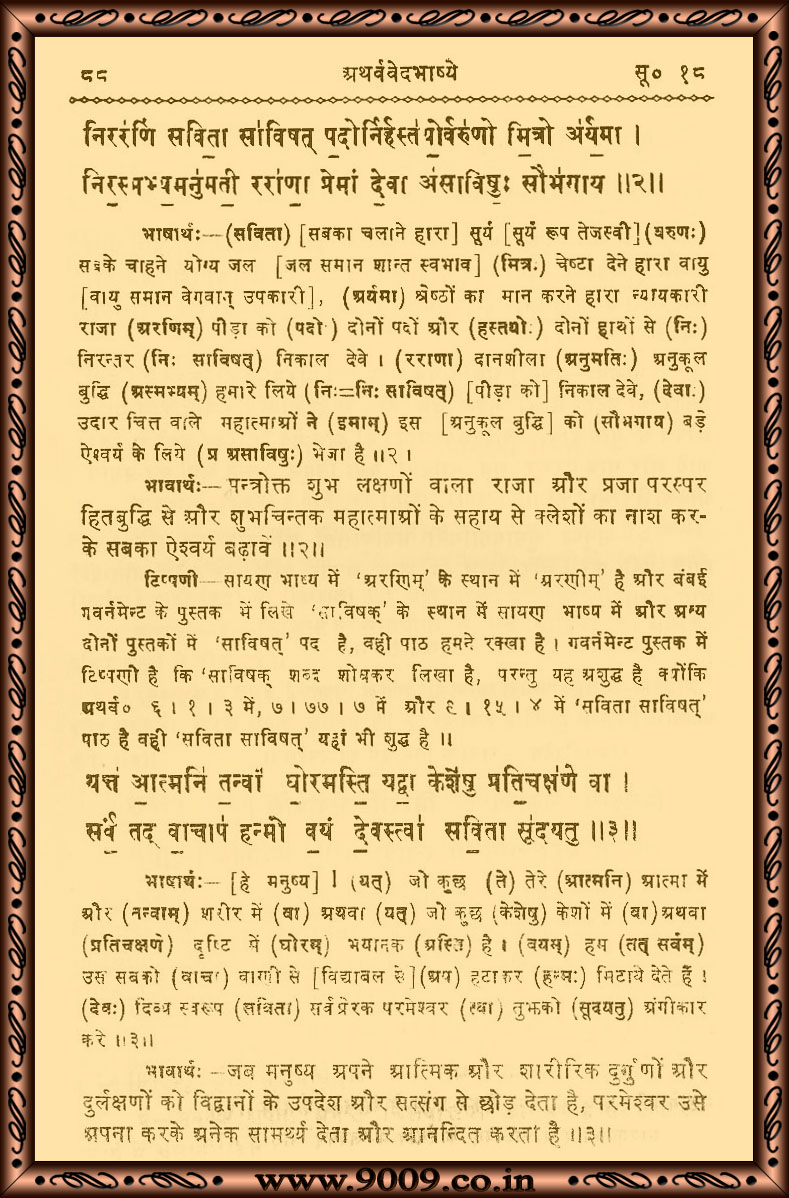 ८८ अथर्ववेदभाष्ये सू० १८
निररणिं सविता साविषत् पदोर्निर्हस्तयोर्वरुणो मित्रो अर्यमा ।
निरस्मभ्यमनुमती रराणा प्रेमां देवा असाविषुः सौभगाय ॥२॥
भाषार्थः—(सविता) [सबका चलाने हारा] सूर्य [सूर्य रूप तेजस्वी] (वरुणः)
सबके चाहने योग्य जल [जल समान शान्त स्वभाव] (मित्रः) चेष्टा देने हारा वायु
[वायु समान वेगवान् उपकारी], (अर्यमा) श्रेष्ठों का मान करने हारा न्यायकारी
राजा (अरणिम्) पीड़ा को (पदोः) दोनों पदों और (हस्तयोः) दोनों हाथों से (निः)
निरन्तर (निः साविषत्) निकाल देवे । (रराणा) दानशीला (अनुमतिः) अनुकूल
बुद्धि (अस्मभ्यम्) हमारे लिये (निः=निः साविषत्) [पीड़ा को] निकाल देवे, (देवाः)
उदार चित्त वाले महात्माओं ने (इमाम्) इस [अनुकूल बुद्धि] को (सौभगाय) बड़े
ऐश्वर्य के लिये (प्र असाविषुः) भेजा है ॥२।
भावार्थः—पन्त्रोक्त शुभ लक्षणों वाला राजा और प्रजा परस्पर
हितबुद्धि से और शुभचिन्तक महात्माओं के सहाय से क्लेशों का नाश कर-
के सबका ऐश्वर्य बढ़ावें ॥२॥
टिप्पणी—सायण भाष्य में ‘अरणिम्’ के स्थान में ‘अरणीम्’ है और बंबई
गवर्नमेन्ट के पुस्तक में लिखे ‘साविषक्’ के स्थान में सायण भाष्य में और अन्य
दोनों पुस्तकों में ‘साविषत्’ पद है, वही पाठ हमने रक्खा है । गवर्नमेन्ट पुस्तक में
टिप्पणी है कि ‘साविषक् शब्द शोधकर लिखा है, परन्तु यह अशुद्ध है क्योंकि
अथर्व० ६ । १ । ३ में, ७ । ७७ । ७ में और ६ । १५ । ४ में ‘सविता साविषत्’
पाठ है वही ‘सविता साविषत्’ यहां भी शुद्ध है ॥
यत्त आत्मनि तन्वां घोरमस्ति यद्वा केशेषु प्रतिचक्षणे वा ।
सर्वं तद् वाचाप हन्मो वयं देवस्त्वा सविता सूदयतु ॥३॥
भाषार्थः—[हे मनुष्य] ! (यत्) जो कुछ (ते) तेरे (आत्मनि) आत्मा में
और (तन्वाम्) शरीर में (वा) अथवा (यत्) जो कुछ (केशेषु) केशों में (वा) अथवा
(प्रतिचक्षणे) दृष्टि में (घोरम्) भयानक (अस्ति) है । (वयम्) हम (तत् सर्वम्)
उस सबको (वाचा) वाणी से [विद्याबल से] (अप) हटाकर (हन्मः) मिटाये देते हैं ।
(देवः) दिव्य स्वरूप (सविता) सर्वप्रेरक परमेश्वर (त्वा) तुझको (सूदयतु) अंगीकार
करे ॥३॥
भावार्थः—जब मनुष्य अपने आत्मिक और शारीरिक दुर्गुणों और
दुर्लक्षणों को विद्वानों के उपदेश और सत्संग से छोड़ देता है, परमेश्वर उसे
अपना करके अनेक सामर्थ्य देता और आनन्दित करता है ॥३॥
www.9009.co.in